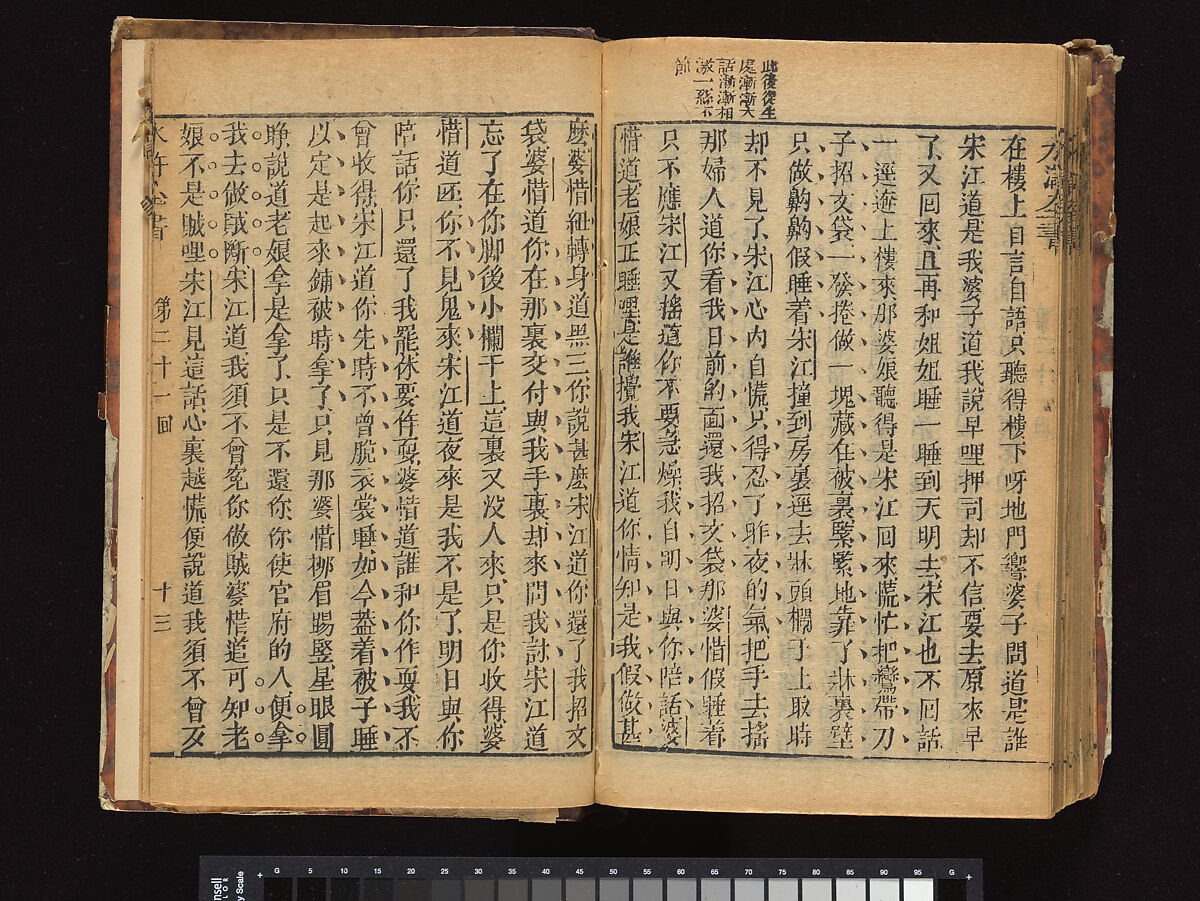 此後從生
處漸漸大
話漸漸相
激一絲不
節
在樓上自言自語只聽得樓下呀地門響婆子問道是誰
宋江道是我婆子道我說早哩押司却不信要去原來早
了又回來且再和姐姐睡一睡到天明去宋江也不回話
一逕逩上樓來那婆娘聽得是宋江回來慌忙把鑾帶刀
子招文袋一發捲做一塊藏在被裏緊緊地靠了牀裏壁
只做齁齁假睡着宋江撞到房裏逕去牀頭欄干上取時
却不見了宋江心內自慌只得忍了昨夜的氣把手去搖
那婦人道你看我日前的面還我招文袋那婆惜假睡着
只不應宋江又搖道你不要急燥我自明日與你陪話婆
惜道老娘正睡哩是誰攪我宋江道你情知是我假做甚
麽婆惜紐轉身道黑三你說甚麽宋江道你還了我招文
袋婆惜道你在那裏交付與我手裏却來問我討宋江道
忘了在你脚後小欄干上這裏又没人來只是你收得婆
惜道呸你不見鬼來宋江道夜來是我不是了明日與你
陪話你只還了我罷休要作耍婆惜道誰和你作耍我不
曾收得宋江道你先時不曾脫衣裳睡如今盖着被子睡
以定是起來鋪被時拿了只見那婆惜柳眉踢竪星眼圓
睁說道老娘拿是拿了只是不還你你使官府的人便拿
我去做賊斷宋江道我須不曾寃你做賊婆惜道可知老
娘不是賊哩宋江見這話心裏越慌便說道我須不曾歹
水滸全書
第二十一回
十三